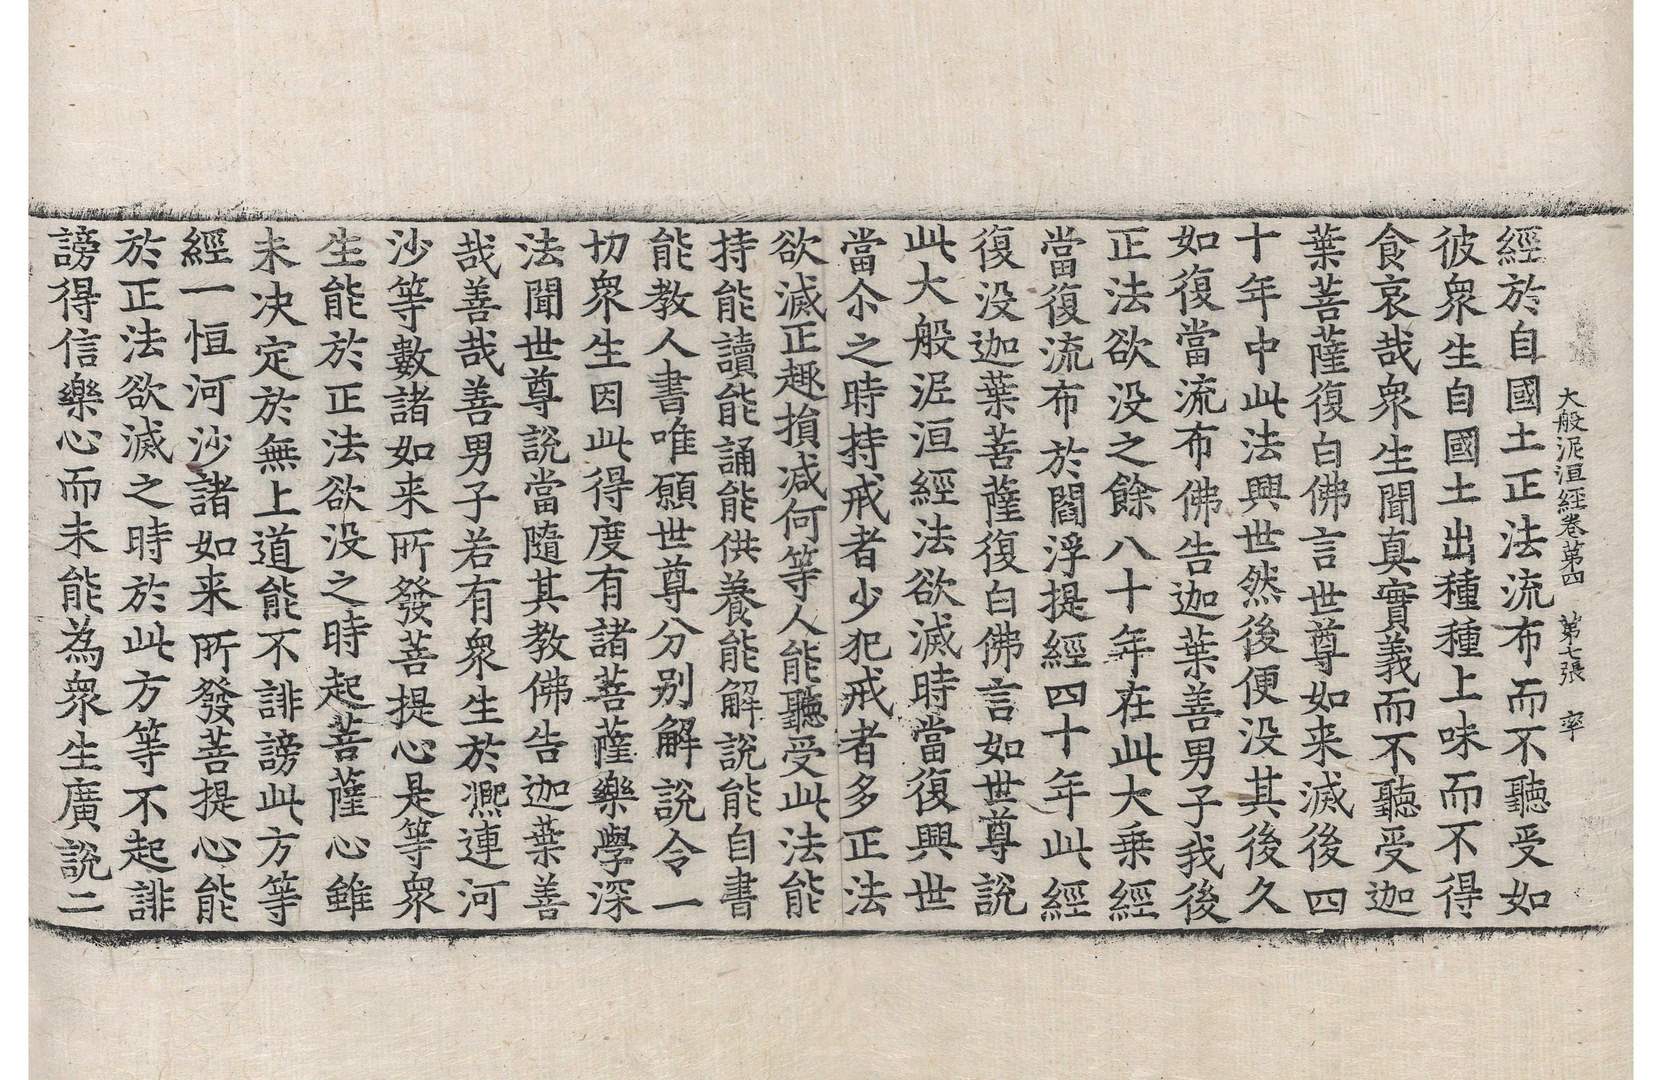 大般泥洹經卷第四 第七張 率
經於自國土正法流布而不聽受如
彼衆生自國土出種種上味而不得
食哀哉衆生聞真實義而不聽受迦
葉菩薩復白佛言世尊如来滅後四
十年中此法興世然後便没其後久
如復當流布佛告迦葉善男子我後
正法欲没之餘八十年在此大乗經
當復流布於閻浮提經四十年此經
復没迦葉菩薩復白佛言如世尊說
此大般泥洹經法欲滅時當復興世
當尒之時持戒者少犯戒者多正法
欲滅正趣損减何等人能聽受此法能
持能讀能誦能供養能解說能自書
能教人書唯願世尊分别解說令一
切衆生因此得度有諸菩薩樂學深
法聞世尊說當隨其教佛告迦葉善
哉善哉善男子若有衆生於熈連河
沙等數諸如来所發菩提心是等衆
生能於正法欲没之時起菩薩心雖
未决定於無上道能不誹謗此方等
經一恒河沙諸如来所發菩提心能
於正法欲滅之時於此方等不起誹
謗得信樂心而未能為衆生廣說二